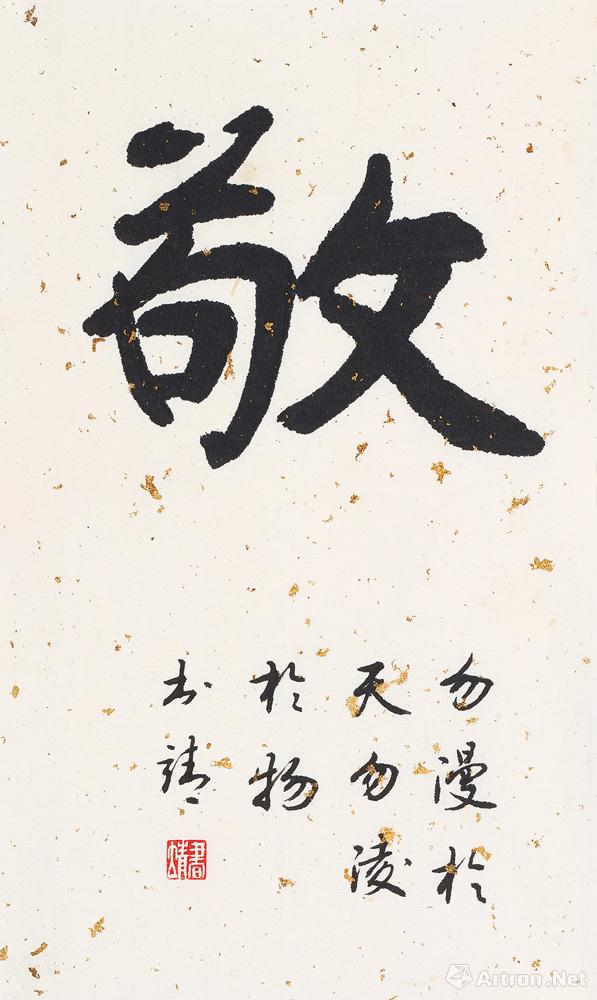 敬
勿漫於
天勿淩
於物
书靖
書靖
Artron.Net